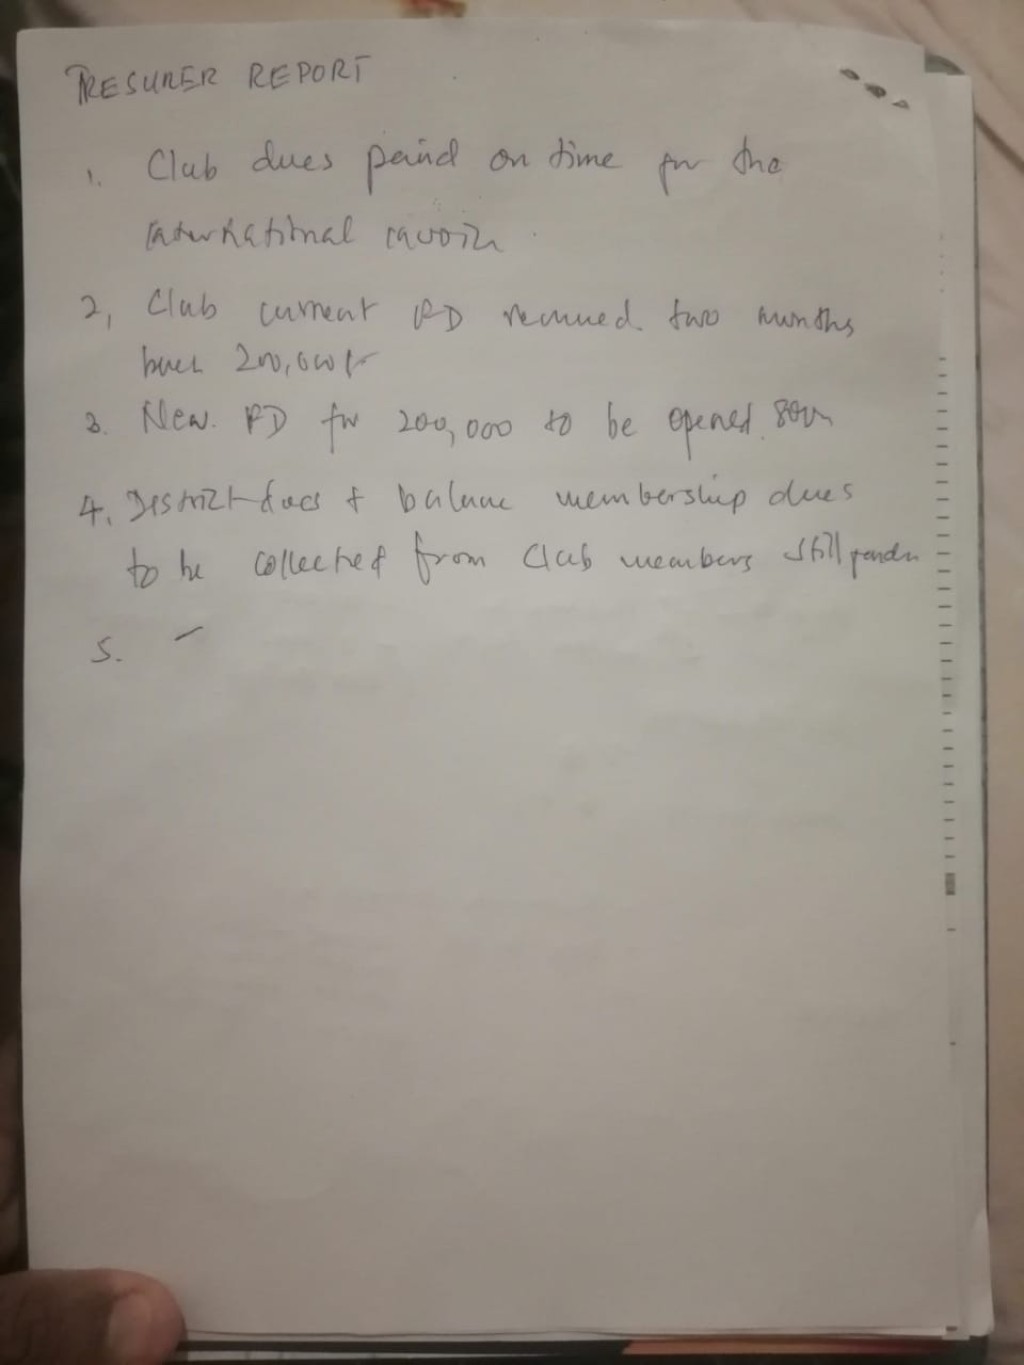 TRESURER REPORT
1. Club dues paid on time for the
international invoice
2, Club current FD renewed two months
back 200,000/-
3. New. FD for 200,000 to be opened soon
4. District dues & balance membership dues
to be collected from Club members still
5. -